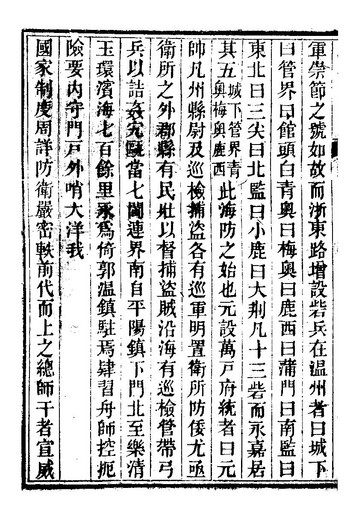 軍崇節之號如故而浙東路增設砦兵在温州者曰城下
曰管界曰館頭曰青奥曰梅奥曰鹿西曰蒲門曰南監曰
東北曰三尖曰北監曰小鹿曰大荆凡十三砦而永嘉居
其五城下管界青奥梅奥鹿西此海防之始也元設萬戸府統者曰元
帥凡州縣尉及巡檢捕盗各有巡軍明置衛所防倭尤亟
衛所之外郡縣有民壯以督捕盗賊沿海有巡檢管帶弓
兵以詰奸宄甌當七閩連界南自平陽鎮下門北至樂清
玉環濱海七百餘里永爲倚郭温鎮駐焉肄習舟師控扼
險要内守門戸外哨大洋我
國家制度周詳防衛嚴密軼前代而上之總師干者宣威